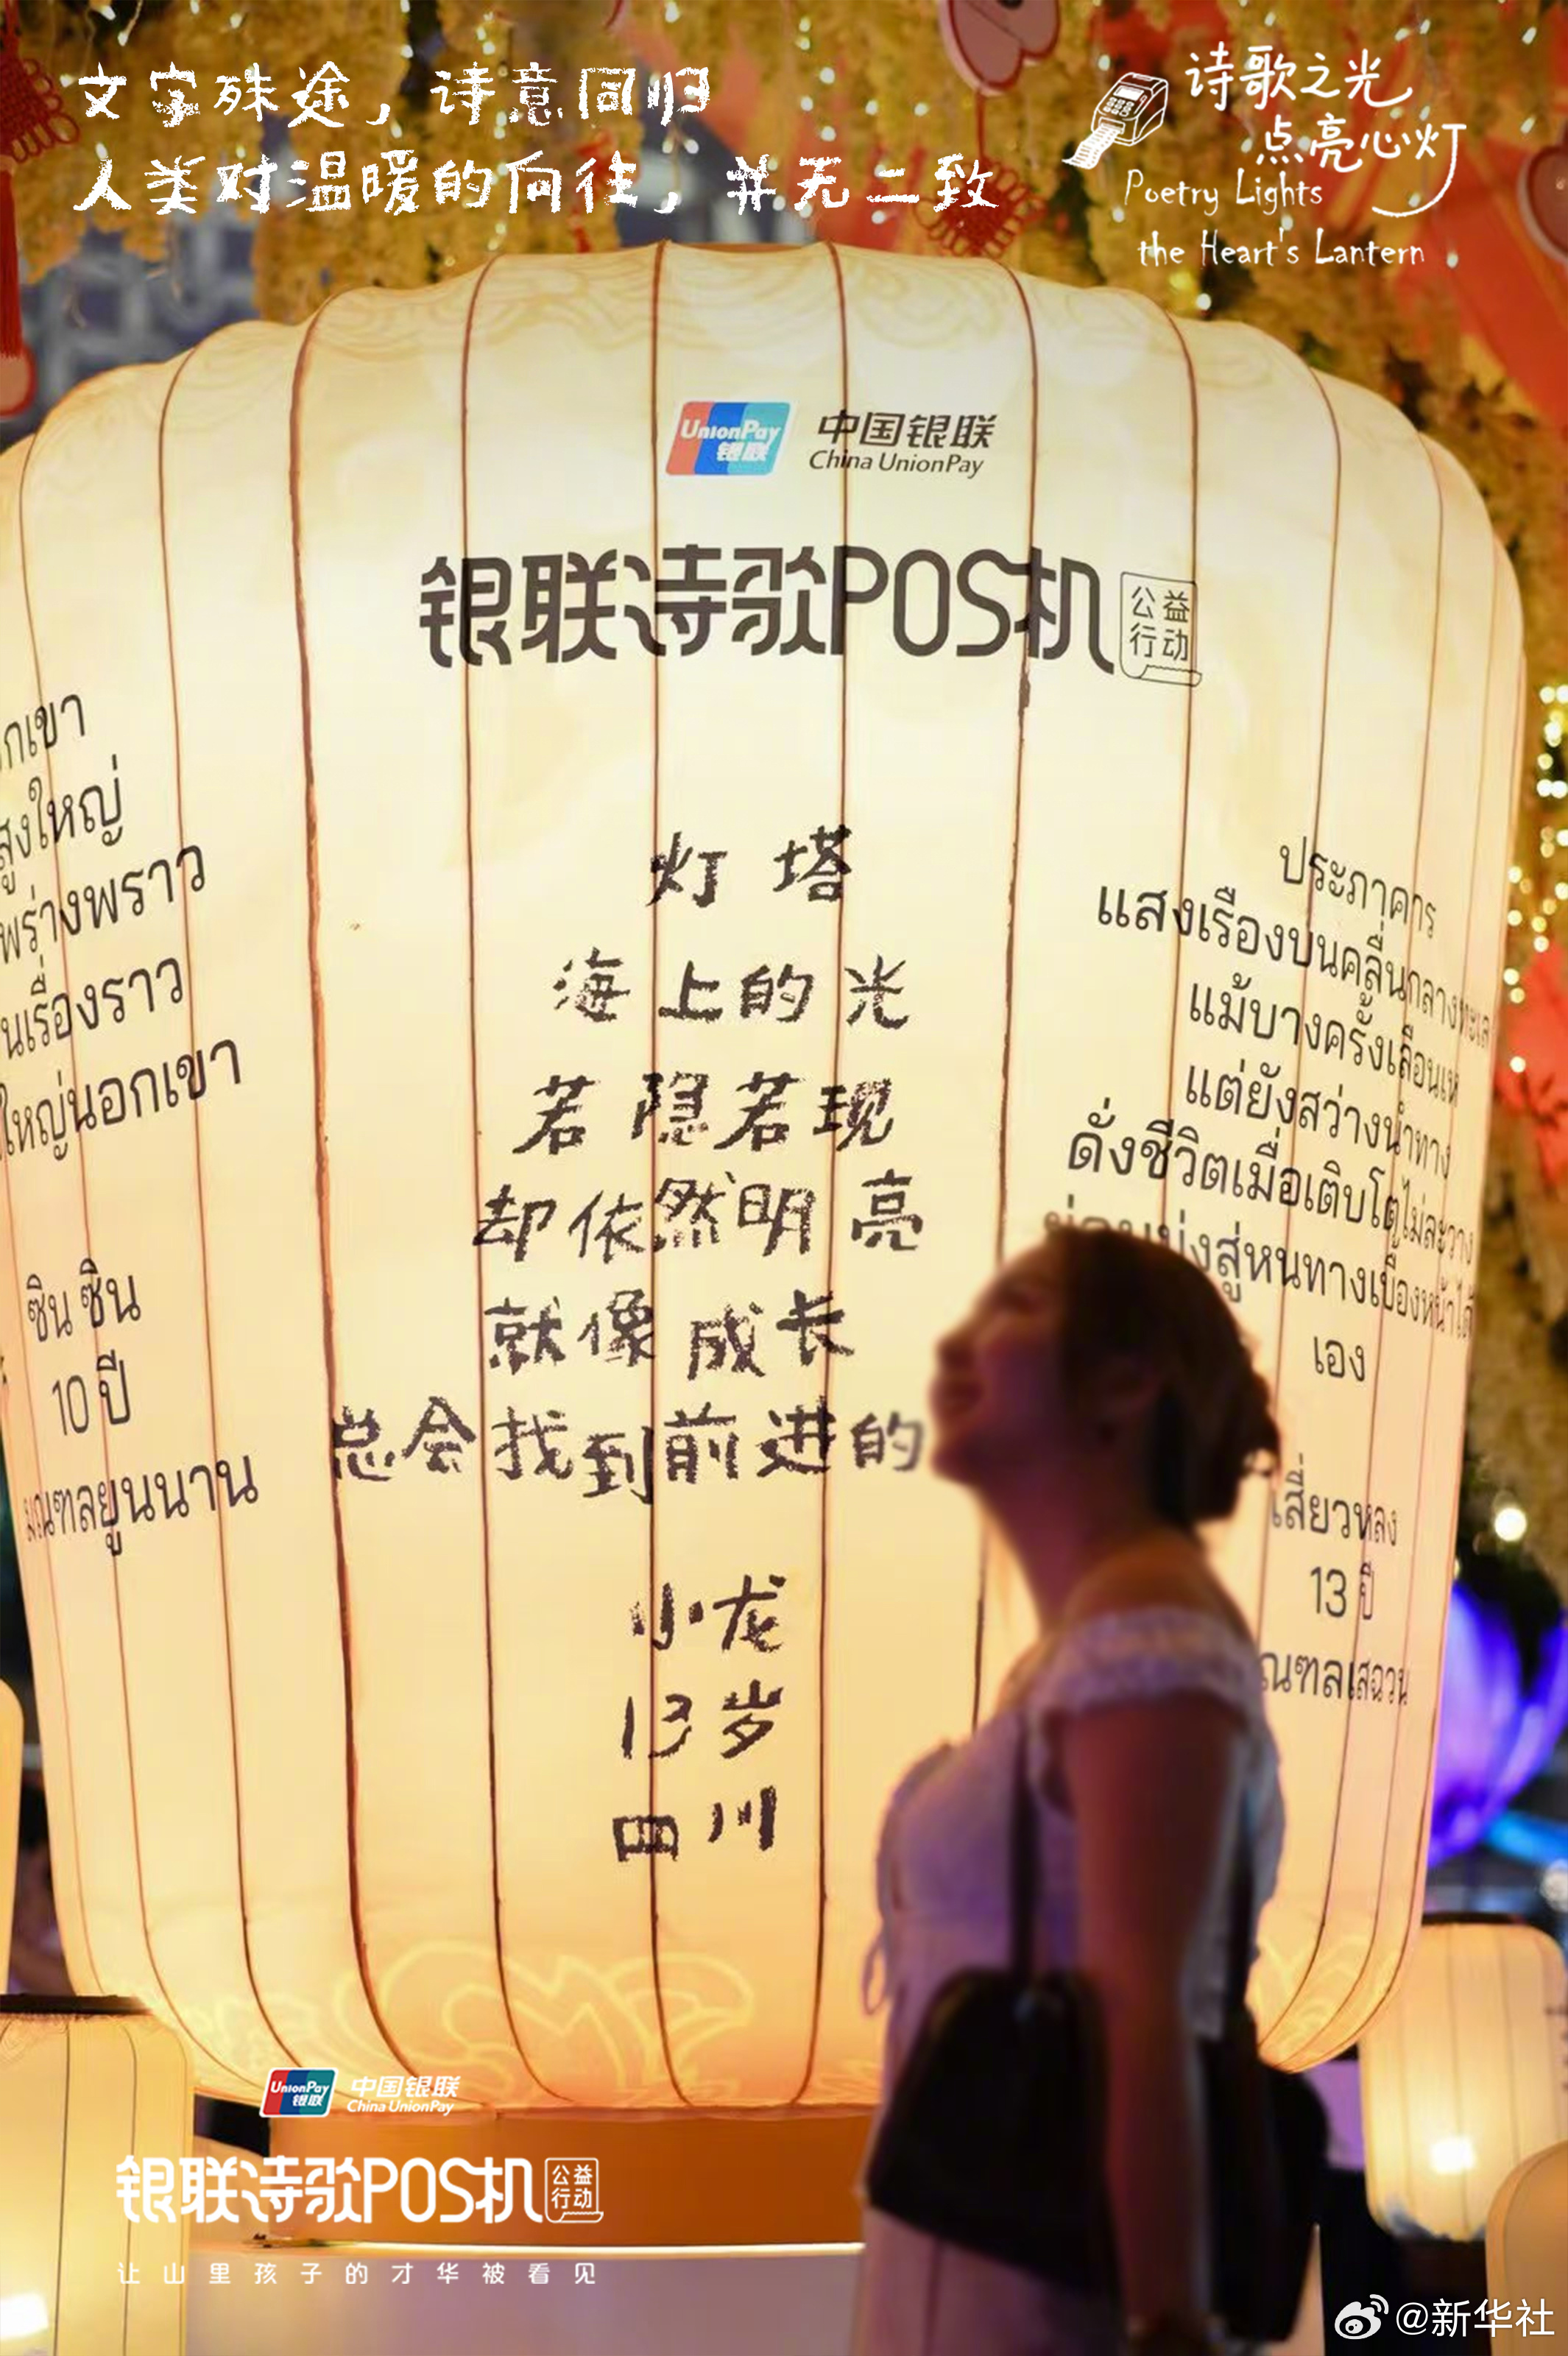 文字殊途，诗意同归
人类对温暖的向往，并无二致
诗歌之光
点亮心灯
Poetry Lights
the Heart's Lantern
UnionPay
银联
中国银联
China UnionPay
银联诗歌POS机
公益
行动
灯塔
海上的光
若隐若现
却依然明亮
就像成长
总会找到前进的
小龙
13岁
四川
กเขา
สูงใหญ่
พร่างพราว
นเรื่องราว
ใหญ่นอกเขา
ซิน ซิน
10 ปี
มณฑลยูนนาน
ประภาคาร
แสงเรืองบนคลื่นกลางทะเล
แม้บางครั้งเลือนห
แต่ยังสว่างนำทาง
ดั่งชีวิตเมื่อเติบโตไม่ละวาง
มุ่งสู่หนทางเบื้องหน้าได้
เอง
เสี่ยวหลง
13 ปี
ณฑลเสฉวน
UnionPay
银联
中国银联
China UnionPay
银联诗歌POS机
公益
行动
让山里孩子的才华被看见
@新华社